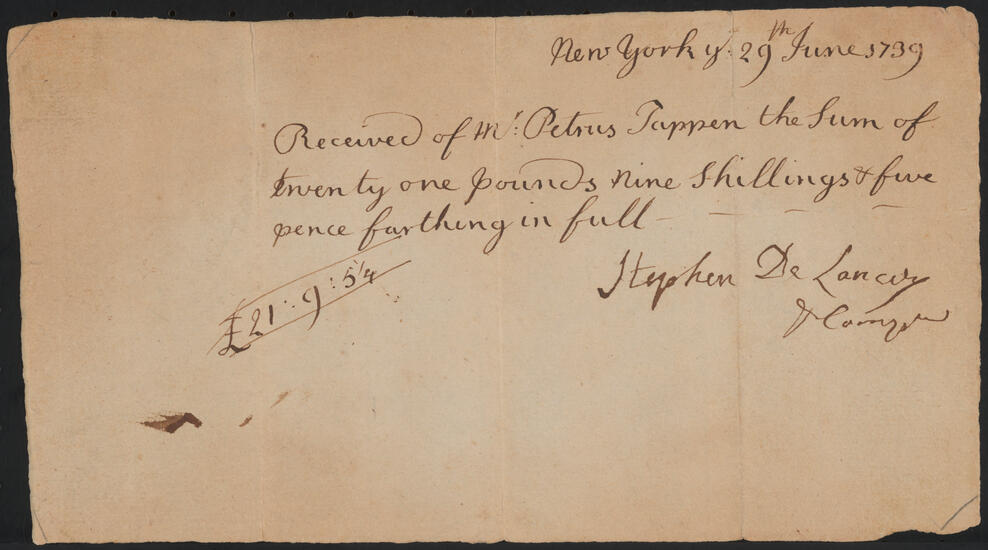 New York y: 29th June 1739
Received of Mr: Petrus Tappen the Sum of
twenty one pounds nine Shillings & five
pence farthing in full — — — —
£21:9:5¼
Stephen De Lancey
& Compa